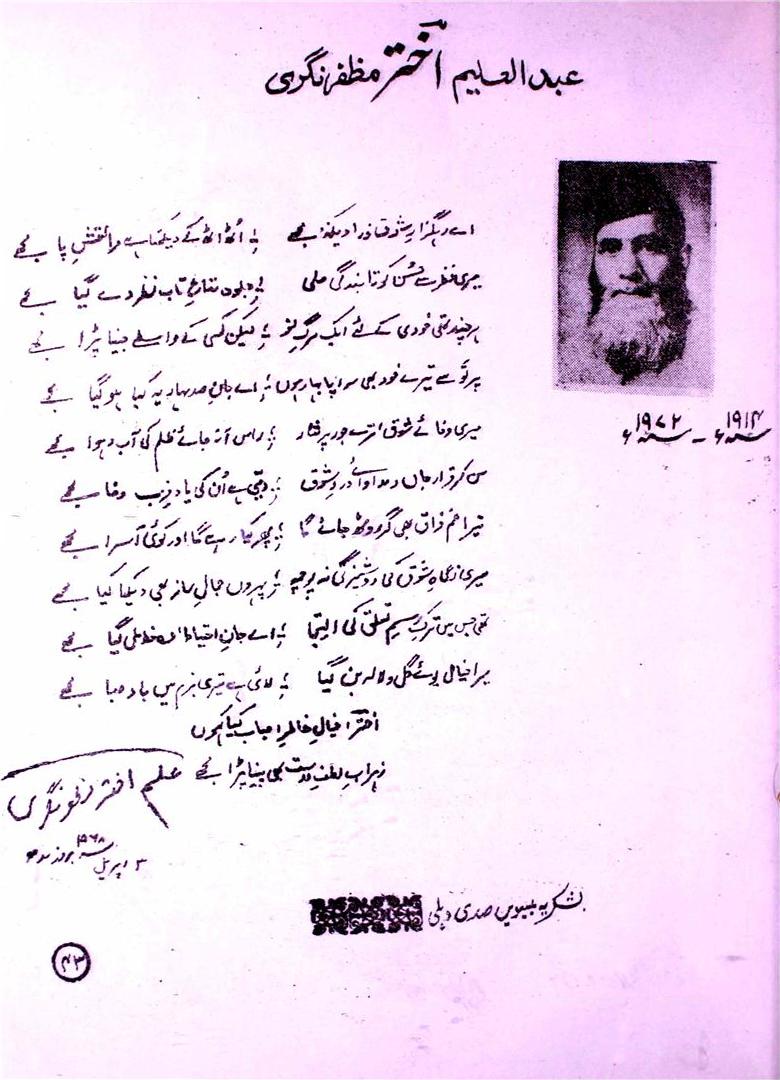 عبدالعلیم اختر مظفرنگری
اے رہگزارِ شوق ذرا دیکھنا مجھے ؛ اُٹھ اٹھ کے دیکھتا ہے مرا نقشِ پا مجھے
میری نظر سے حسن کو تابندگی ملی ؛ جلوہ متاعِ تابِ نظر دے گیا مجھے
ہر چند تھی خودی کے لئے ایک مرگِ نو ؛ لیکن کسی کے واسطے جینا پڑا مجھے
پرتو سے تیرے خود بھی سراپا بہار ہوں ؛ اے جانِ صد بہار یہ کیا ہو گیا مجھے
میری وفائے شوق ترے جور پر نثار ؛ راس آ نہ جائے ظلم کی آب و ہوا مجھے
قرارِ جاں مداوائے دردِ شوق ؛ دیتی ہے اُن کی یاد فریبِ وفا مجھے
تیرا غمِ فراق بھی گر روٹھ جائے گا ؛ پھر کیا رہے گا اور کوئی آسرا مجھے
میری نگاہِ شوق کی نہ پوچھ ؛ پہروں جمالِ یار بھی دیکھا کیا مجھے
تھی جس میں ترکِ رسمِ تعلق کی التجا ؛ اے جانِ احتیاط وہ خط مل گیا مجھے
میرا خیال بوئے گل و لالہ بن گیا ؛ لائی ہے تیری بزم میں بادِ صبا مجھے
اختر خیالِ خاطرِ احباب کیا کہوں
زہرابِ لطفِ دوست بھی پینا پڑا مجھے
علیم اختر مظفرنگری
۳ اپریل ۱۹۶۸ء بروز
۱۹۱۴ء - ۱۹۷۲ء
بشکریہ بیسویں صدی دہلی
۴۳